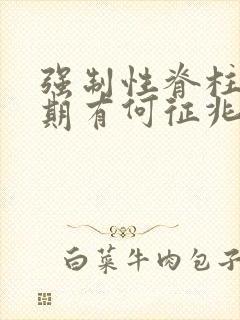 强制性脊柱
期有何征兆
白菜牛肉包子